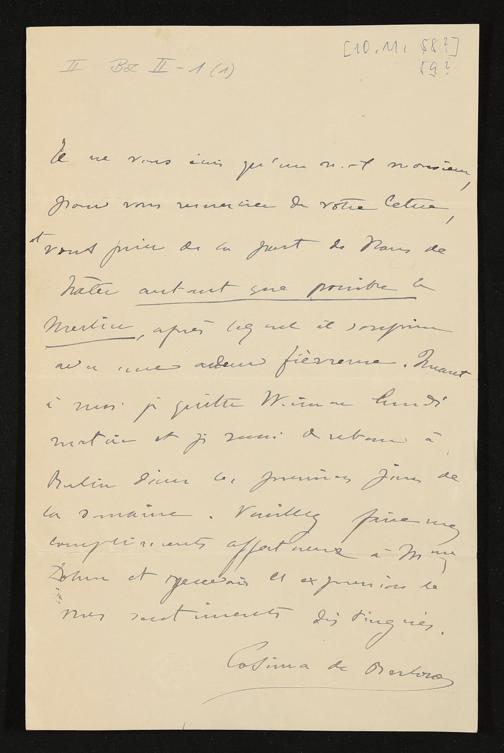 [10. 11. 58?]
59?
II BZ II - 1 (1)
Je ne vous écris qu'un mot monsieur,
pour vous remercier de votre lettre,
et vous prier de la part de Hans de
hâter autant que possible le
Merlin, après lequel il soupire
avec une ardeur fiévreuse. Quant
à moi je quitte Weimar lundi
matin et je serai de retour à
Berlin dans les premiers jours de
la semaine. Veuillez faire mes
compliments affectueux à Mme
Dohm et recevoir l'expression de
mes sentiments distingués.
Cosima de Bulow